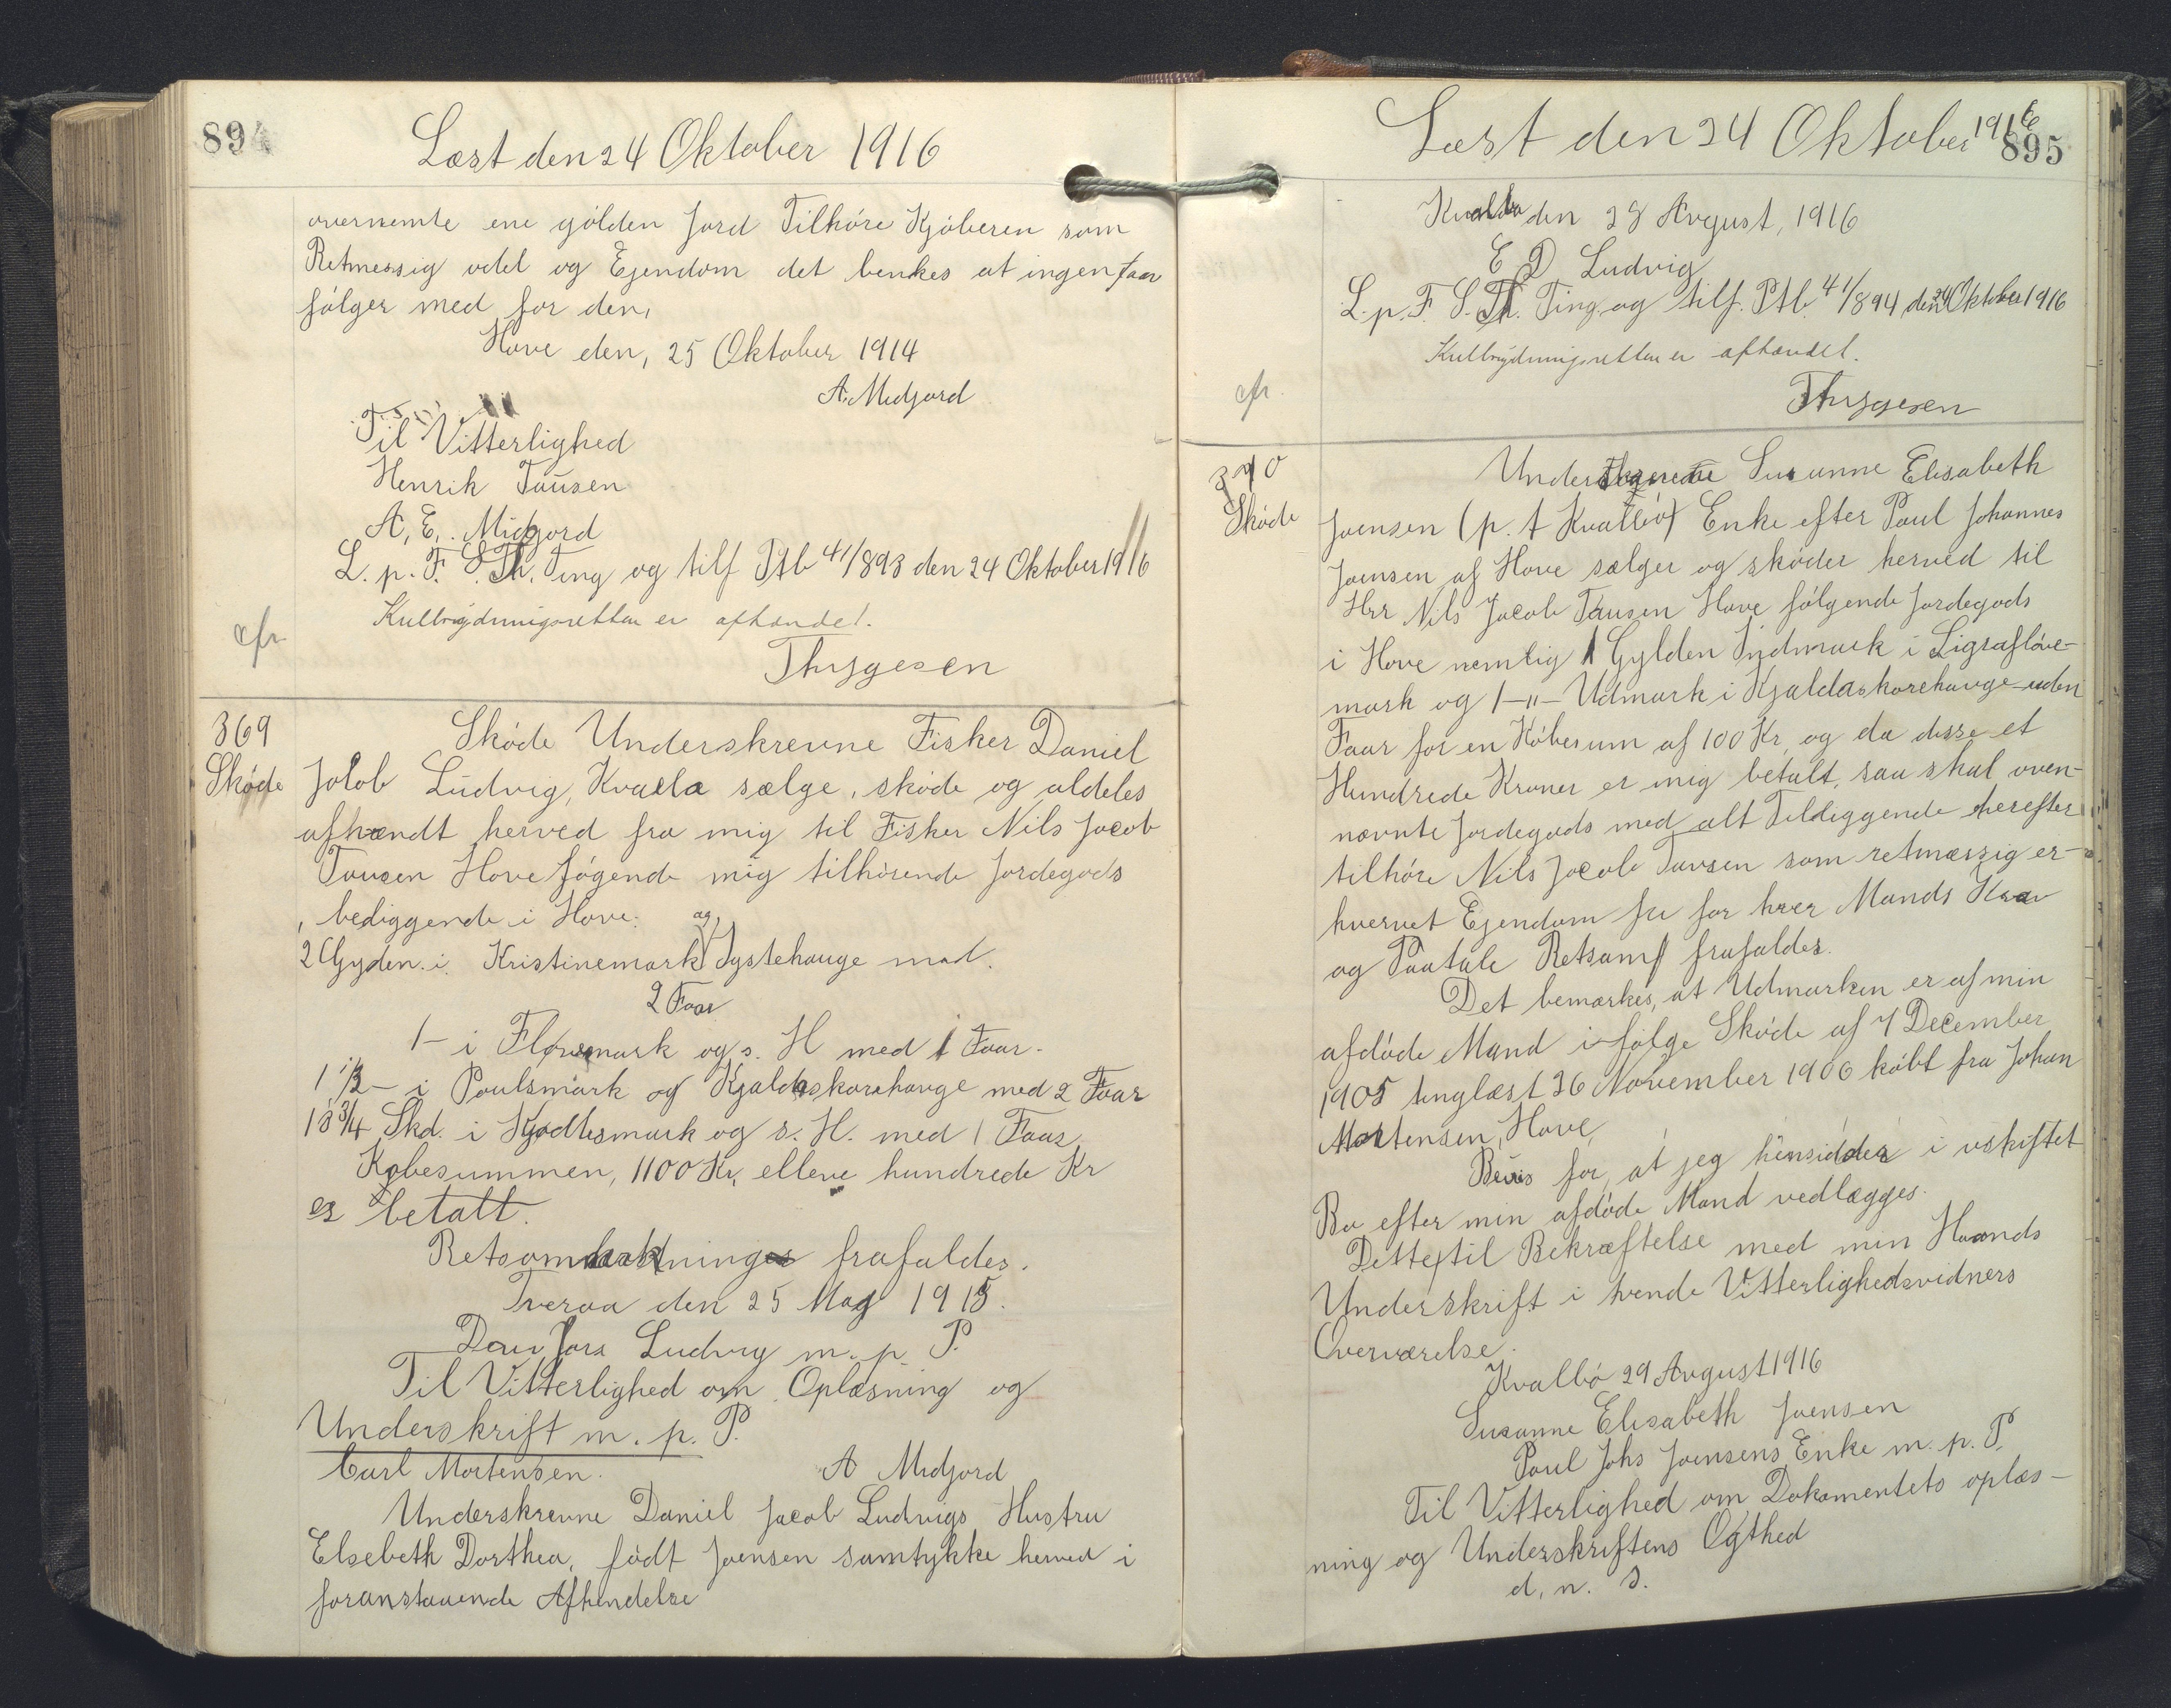 894
Læst den 24 Oktober 1916
overnemte ene gölden Jord Tilhöre Kjöberen som
Retmessig odel og Ejendom det benkes at ingen faar
fölger med for den,
Hove den, 25 Oktober 1914
A. Midjord
Til Vitterlighed
Henrik Tausen
A, E,. Midjord
L. p. F. S. Th. Ting og tilf Ptb 41/893 den 24 Oktober 1916
cfr
Kulbrydningsretten er afhændet.
Thygesen
369
Sköde
Sköde Underskrevne Fisker Daniel
Jolob Ludvig, Kvalba sælge, sköde og aldeles
afhændt herved fra mig til Fisker Nils Jacob
Tausen Hove fögende mig tilhörende Jordegods
, bediggende i Hove:
2 Gyden. i Kristinemark og Systehauge mad.
2 Faar
1 – i Flövemark og s. H med 1 Faar.
1 1/2 – i Poulsmark og Kjaldaskorehauge med 2 Faar
18 3/4 Skd. i Kjodlesmark og s. H. med 1 Faar
Købesummen, 1100 Kr, elleve hundrede Kr
er betalt.
frafaldes.
Tveraa den 25 Maj 1915.
Dani Jora Ludvig m. p. P.
Til Vitterlighed om Oplæsning og
Underskrift m. p. P.
Carl Mortensen.
A Midjord
Underskrevne Daniel Jacob Ludvigs Hustru
Elsebeth Dorthea, födt Joensen samtykke herved i
foranstaaende Afhendelse
Læst den 24 Oktober 1916
895
Kvalba den 28 Avgust, 1916
E D Ludvig
L. p. F. S. Th. Ting og tilf. Ptb. 41/894 den 24 Oktober 1916
Kulbrydningsretten er afhændet.
cfr.
Thygesen
370
Sköde
Undertegnede Susanne Elisabeth
Joensen (p. t Kvalbö) Enke efter Poul Johannes
Joensen af Hove sælger og sköder herved til
Hrr Nils Jacob Tausen Hove fölgende Jordegods
i Hove nemlig 1 Gylden Indmark i Ligsaflöve-
mark og 1 –"– Udmark i Kjaldaskorehauge uden
Faar for en Købesum af 100 Kr, og da disse et
Hundrede Kroner er mig betalt, saa skal oven-
nævnte Jordegods med alt Tildiggende herefter
tilhöre Nils Jacob Tavsen som retmæssig er-
hvervet Ejendom fri for hver Mands Krav
og Paatale Retsamf frafaldes.
Det bemærkes, at Udmarken er af min
afdöde Mand ifölge Sköde af 7 December
1905 tinglæst 26 November 1906 köbt fra Johan
Mortensen, Hove,
Bevis for, at jeg hensidder i uskiftet
Bo efter min afdöde Mand vedlægges.
Dette til Bekræftelse med min Haands
Underskrift i tvende Vitterlighedsvidners
Overværelse.
Kvalbö 29 Avgust 1916
Susanne Elisabeth Joensen
Poul Johs Joensens Enke m. p. P.
Til Vitterlighed om Dokomentets oplæs-
ning og Underskriftens Ögthed
d. n. s.